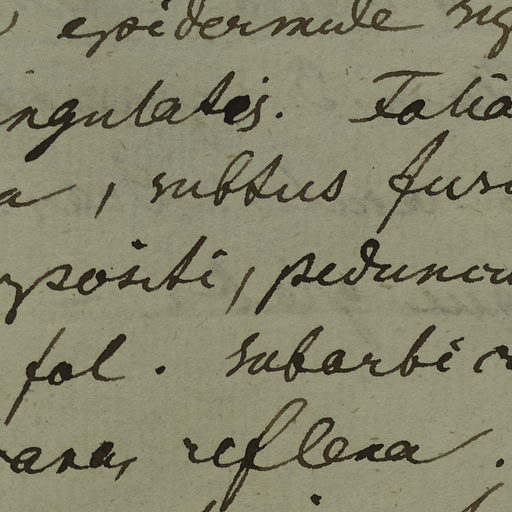 epidermide
ngulatis. Folia
a, subtus fus
positi, peduncu
fol. suborbic
ana, reflexa.